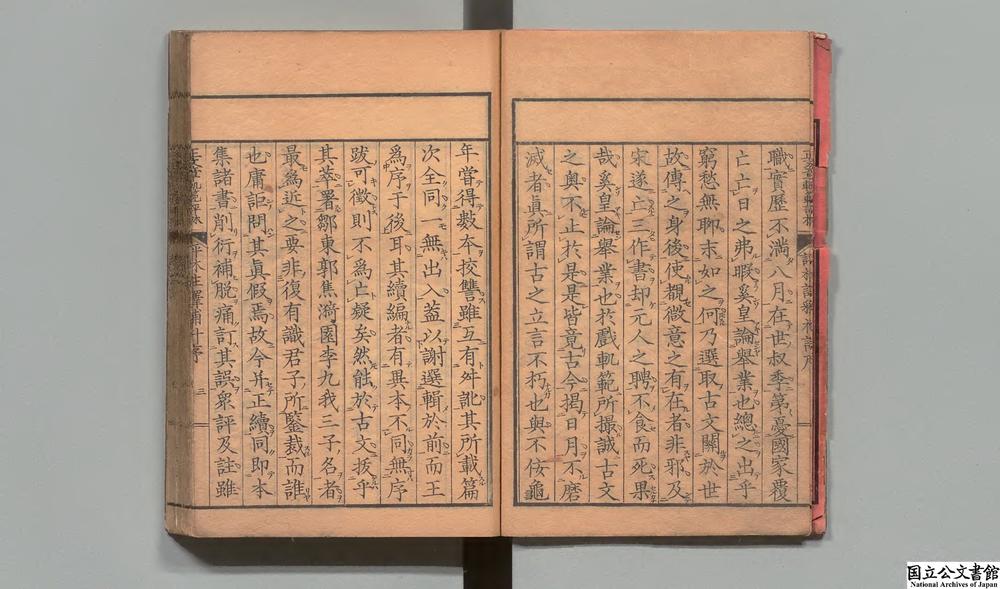 職實歷不滿八月在世叔季第憂國家覆
亡亡日之弗暇奚皇論舉業也總之出乎
窮愁無聊末如之何乃選取古文關於世
故傳之身後使覩微意之有在者非邪及
宋遂亡三作書却元人之聘不食而死果
哉奚皇論舉業也於戲軌範所撮誠古文
之奥不止於是是皆竟古今揭日月不磨
滅者眞所謂古之立言不朽也與不佞龜
年嘗得數本挍讐雖互有舛訛其所載篇
次全同一無出入葢以謝選輯於前而王
爲序于後耳其續編者有異本不同無序
跋可徵則不爲亡疑矣然能於古文拔乎
其萃署鄒東郭焦漪園李九我三子名者
最爲近之要非復有識君子所鑒裁而誰
也庸詎問其眞假焉故今并正續同即本
集諸書削衍補脱痛訂其誤衆評及註雖
国立公文書館
National Archives of Japan